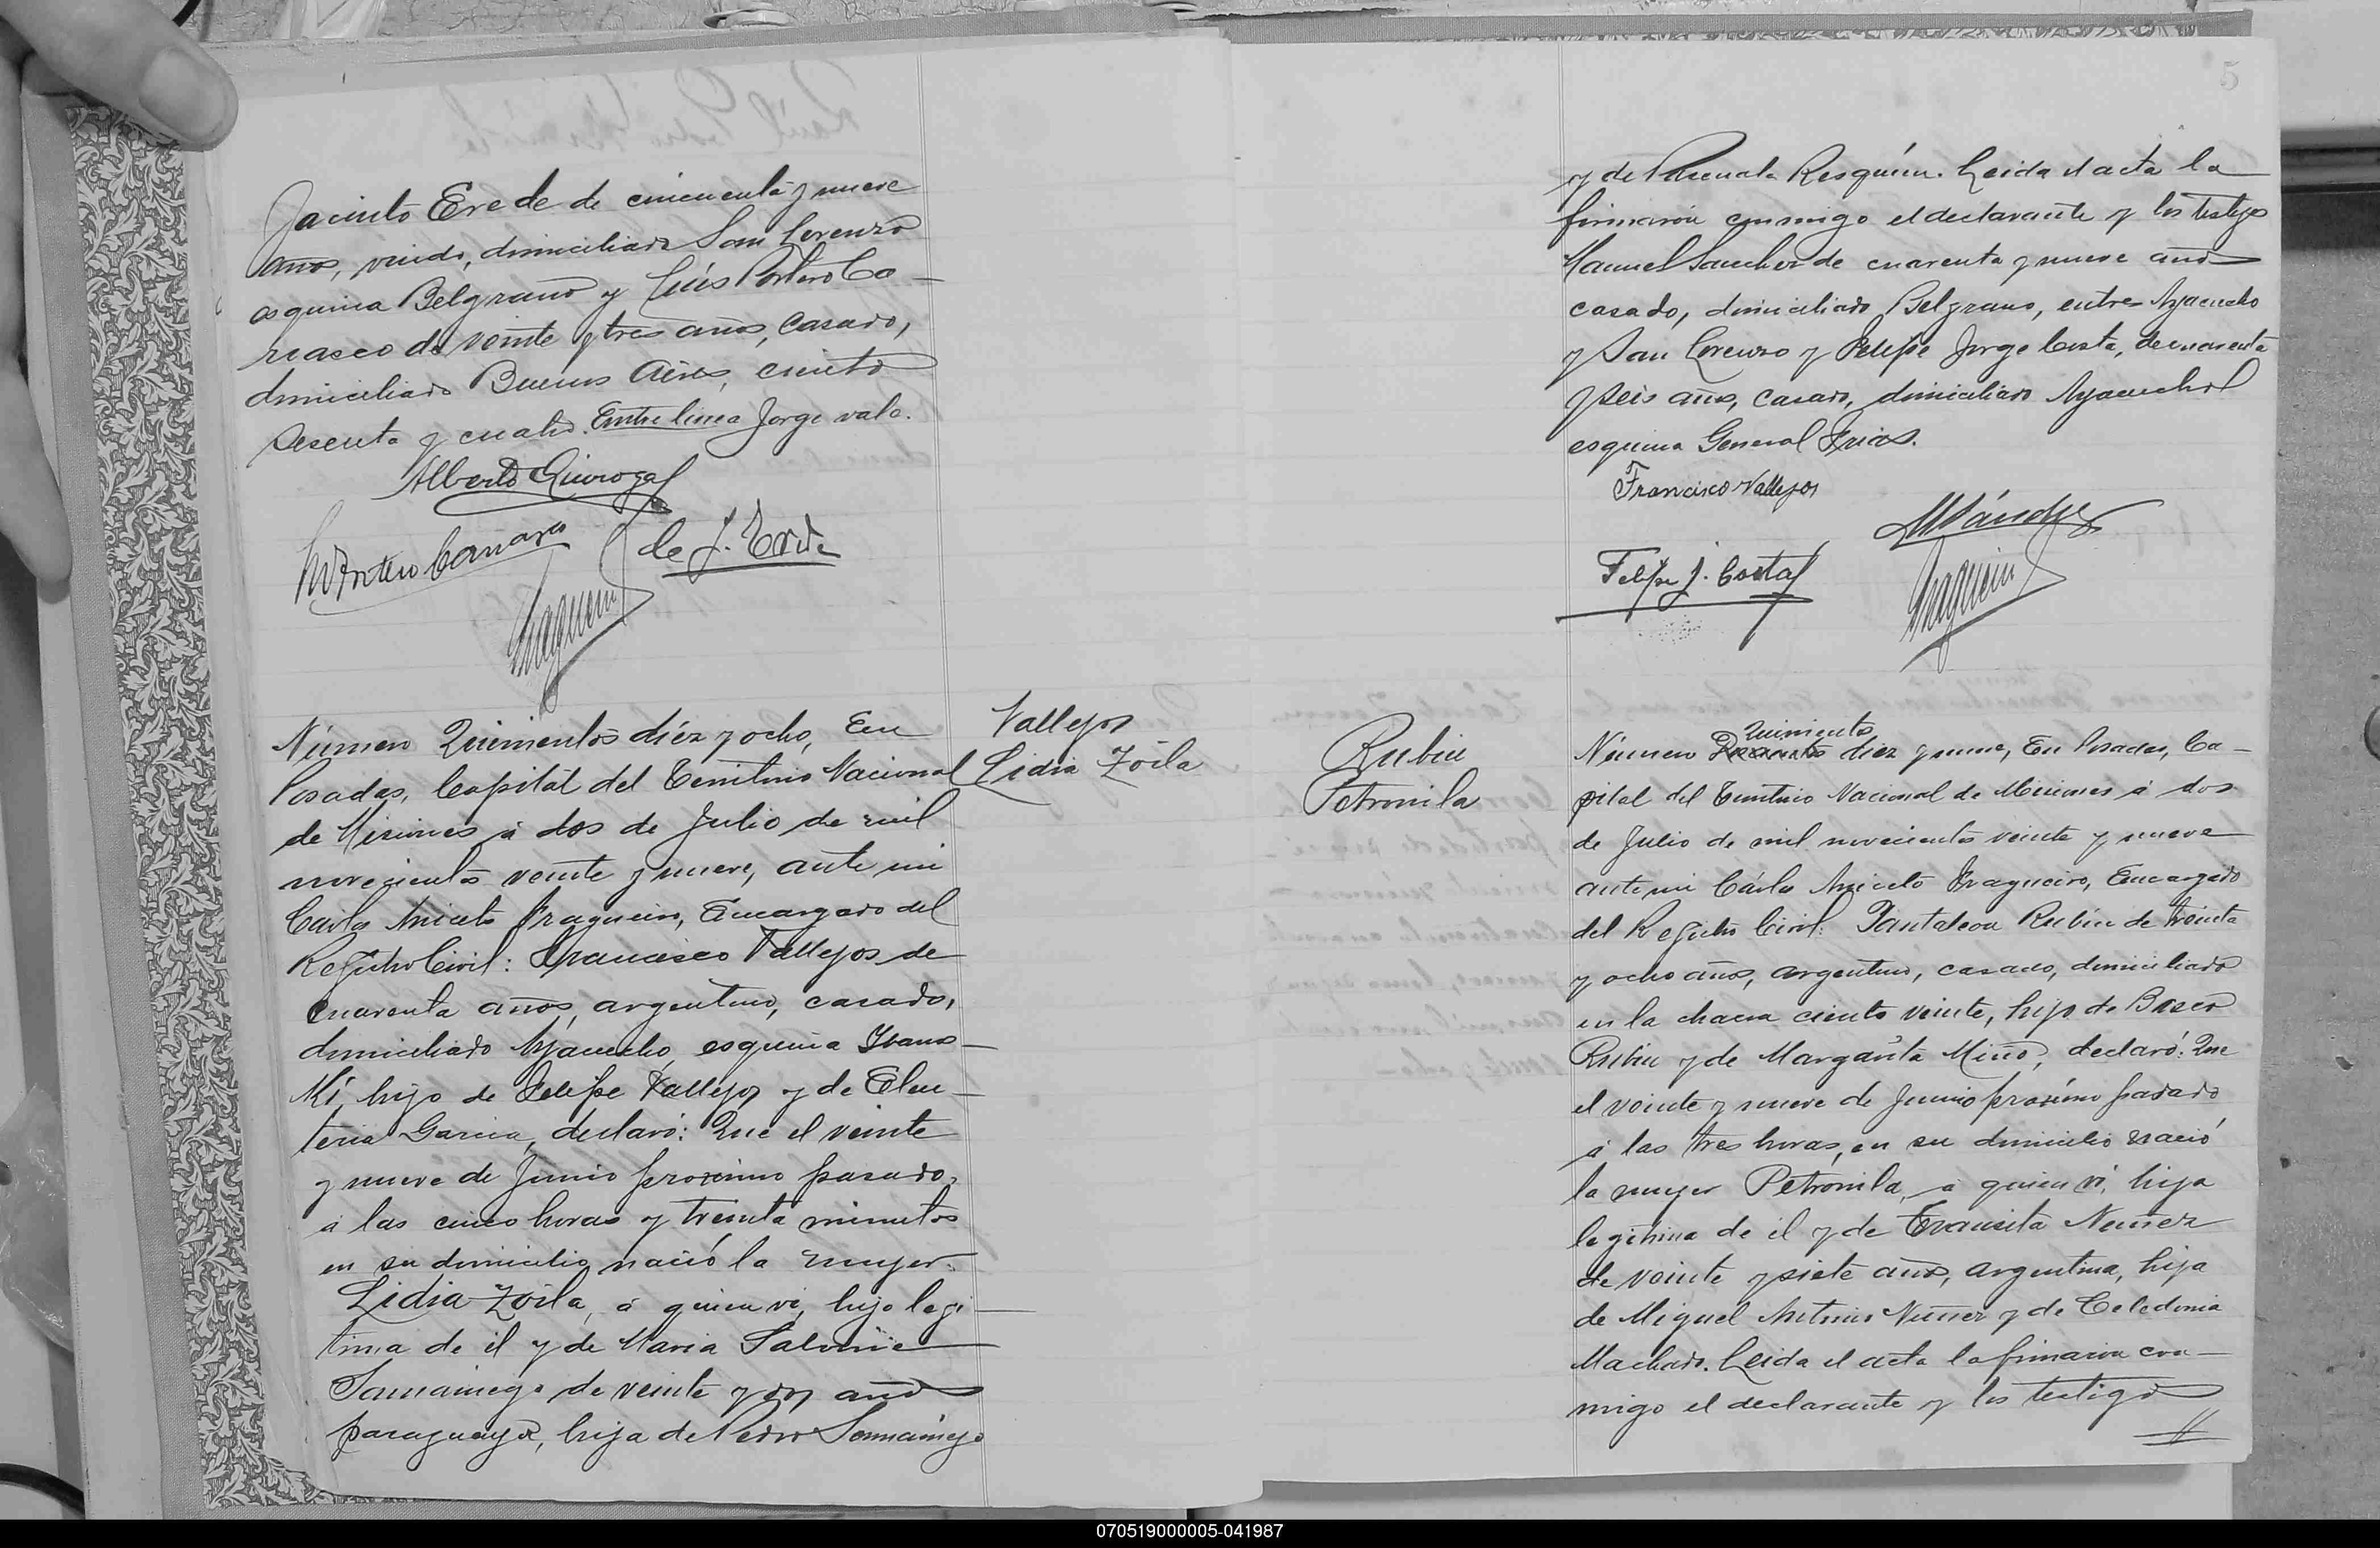 Jacinto Erede de cincuenta y nueve
años, viudo, domiciliado San Lorenzo
esquina Belgrano y Luis Antero Ca-
rrasco de veinte y tres años, casado,
domiciliado Buenos Aires, ciento
sesenta y cuatro. Entre linea Jorge vale.
Alberto Quiroga
de J. Erede
Número Quinientos diéz y ocho, En
Posadas, Capital del Territorio Nacional
de Misiones á dos de Julio de mil
novecientos veinte y nueve, ante mi
Carlos Aniceto Fragueiro, Encargado del
Registro Civil: Francisco Vallejos de
cuarenta años, argentino, casado,
domiciliado Ayacucho esquina Ivans-
ki, hijo de Felipe Vallejos y de Eleu-
teria Garcia, declaró: Que el veinte
y nueve de Junio próximo pasado,
á las cinco horas y treinta minutos
en su domicilio nació la mujer:
Lidia Zoila, á quien vi, hija legi-
tima de él y de Maria Salomé
Samaniego de veinte y dos años
paraguaya, hija de Pedro Samániego
Vallejos
Lidia Zoila
5
y de Pascuala Resquín. Leida el acta la
firmaron conmigo el declarante y los testigos
Manuel Sanchez de cuarenta y nueve años
casado, domiciliado Belgrano, entre Ayacucho
y San Lorenzo y Felipe Jorge Costa, de cuarenta
y seis años, casado, domiciliado Ayacucho
esquina General Frias.
Francisco Vallejos
MSánchez
Felipe J. Costa
Fragueiro
Rubin
Petronila
Quinientos
Número diez y nueve, En Posadas, Ca-
pital del Territorio Nacional de Misiones á dos
de Julio de mil novecientos veinte y nueve
ante mi Cárlos Aniceto Fragueiro, Encargado
del Registro Civil: Pantaleon Rubin de treinta
y ocho años, argentino, casado, domiciliado
en la chacra ciento veinte, hijo de
Rubin y de Margarita Miño, declaró: Que
el veinte y nueve de Junio próximo pasado
á las tres horas, en su domicilio nació
la mujer Petronila, á quien vi, hija
legitima de él y de Transita Nuñez
de veinte y siete años, argentina, hija
de Miguel Antonio Nuñez y de Celedonia
Machado. Leida el acta la firmaron con-
migo el declarante y los testigos
070519000005-041987